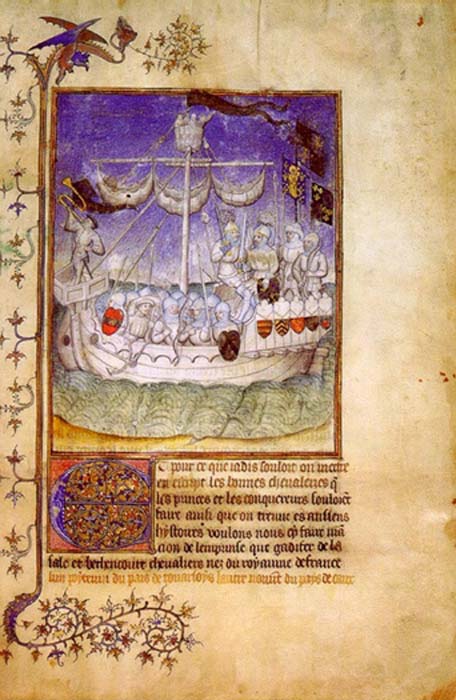 Et pour ce que iadis souloit on mectre
en escript les bonnes cheualeries q̄
les princes et les conquereurs souloiēt
faire ainsi que on treuue es ansiens
hystoires voulons nous cy faire mā
cion de lemprinse que gadifer de la
sale et bethencourt cheualiers nez du royaume de france
lun poyteuin du pais de touarsoys lautre normāt du pays de caux